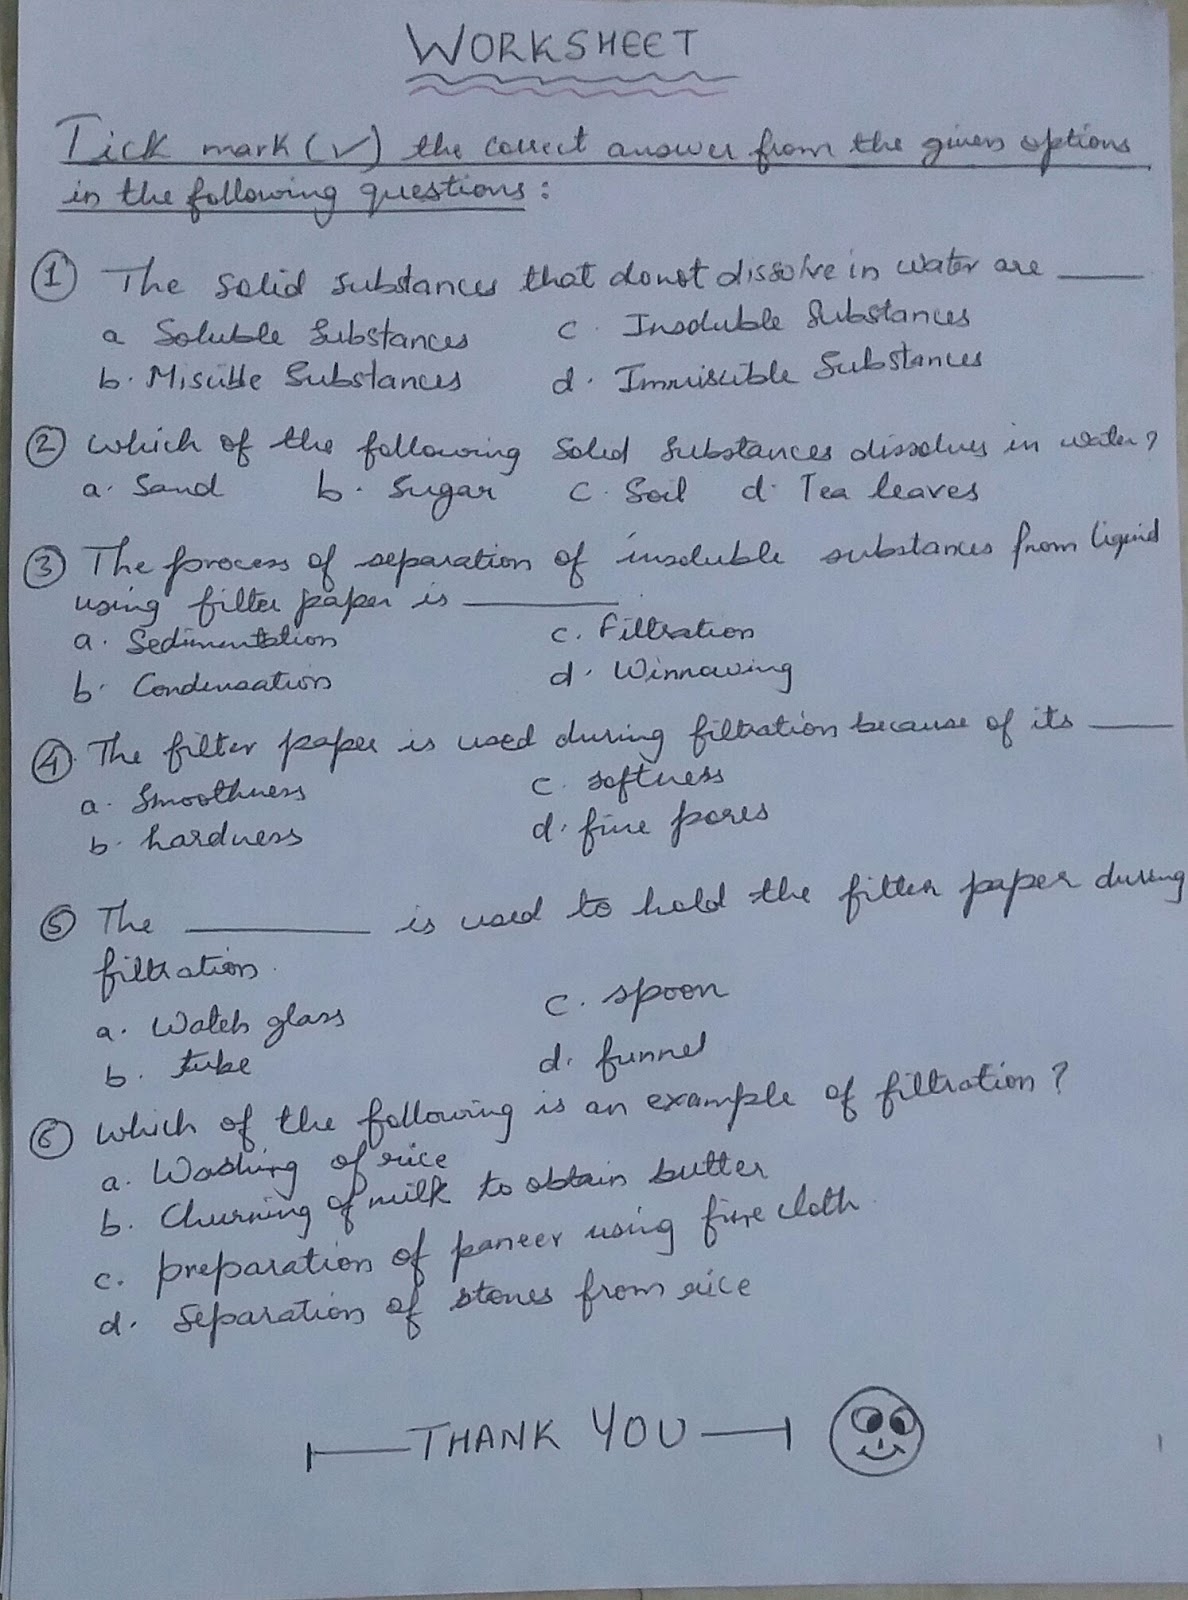 WORKSHEET
Tick mark (✓) the correct answer from the given options
in the following questions:
① The solid substances that donot dissolve in water are ____
a Soluble Substances c. Insoluble Substances
b. Miscible Substances d. Immiscible Substances
② Which of the following Solid Substances dissolves in water?
a. Sand b. Sugar c. Soil d. Tea leaves
③ The process of separation of insoluble substances from liquid
using filter paper is ________.
a. Sedimentation c. Filtration
b. Condensation d. Winnowing
④ The filter paper is used during filtration because of its ____
a. Smoothness c. softness
b. hardness d. fine pores
⑤ The ________ is used to hold the filter paper during
filtration.
a. Watch glass c. spoon
b. tube d. funnel
⑥ Which of the following is an example of filtration?
a. Washing of rice
b. Churning of milk to obtain butter
c. preparation of paneer using fine cloth.
d. Separation of stones from rice
THANK YOU